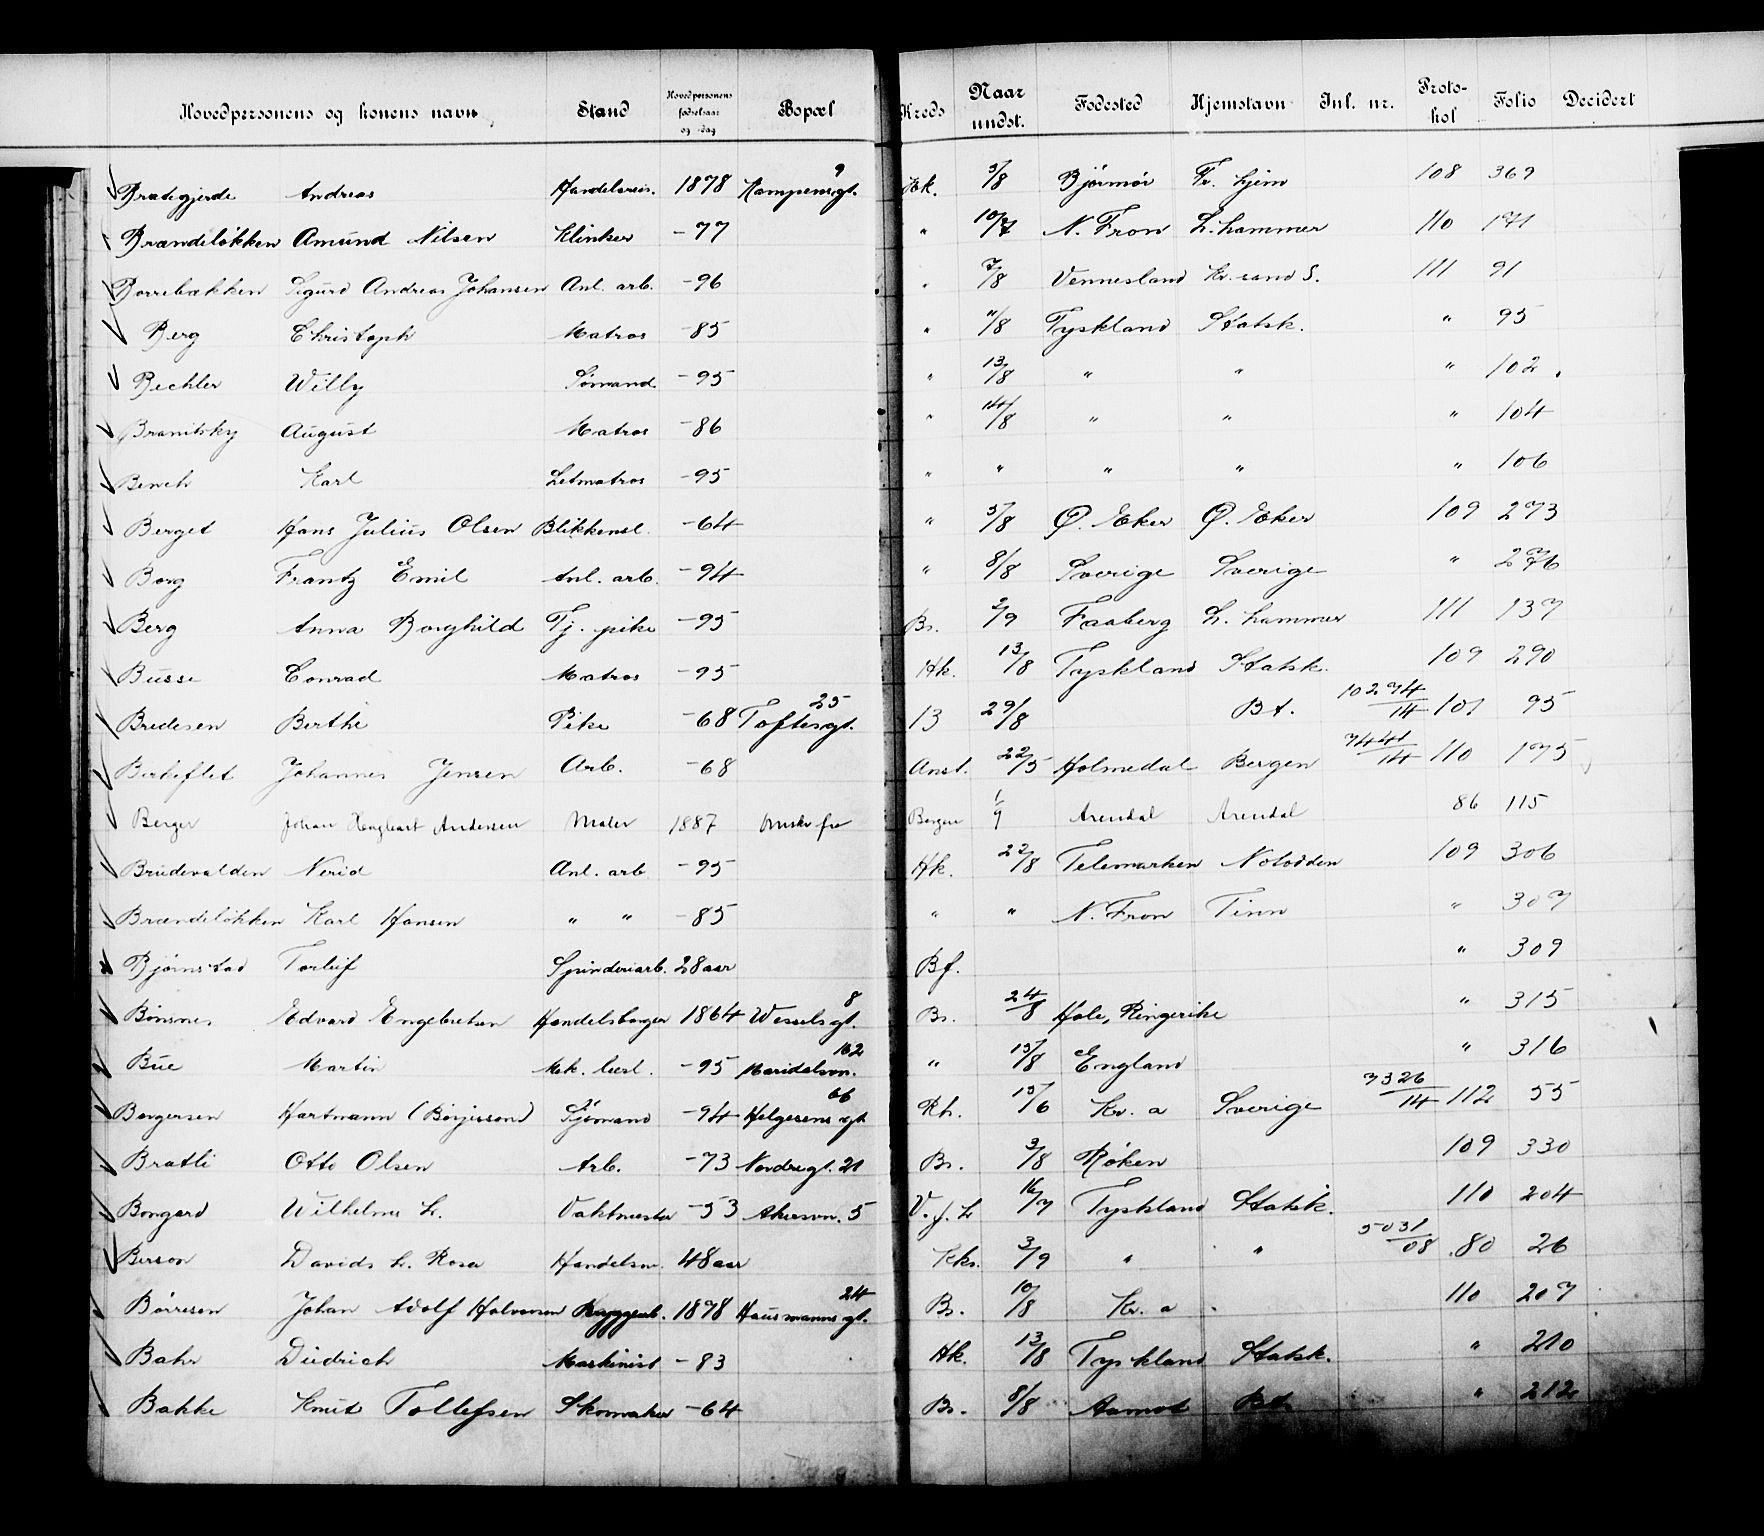 Hovedpersonens og konens navn Stand Hovedpersonens fødselsaar og -dag Bopæl Kreds Naar undst. Fødested Hjemstavn Inl. nr. Proto-kol Folio Decidert
Andreas Handelsreis. 1878 Kampensgt. 9 Hk. 3/8 108 369
Brændeløkken Amund Nilsen Klinker -77 " 10/7 N. Fron L.hammer 110 171
Borrebækken Sigurd Andreas Johansen Anl. arb. -96 " 7/8 Vennesland Kr.sand S. 111 91
Berg Christoph Matros -85 " 11/8 Tyskland Statsk. " 95
Bechler Willy Sømand -95 " 13/8 " " " 102
Branitsky August Matros -86 " 14/8 " " " 104
Karl Letmatros -95 " " " " " 106
Berget Hans Julius Olsen Blikkensl. -64 " 5/8 Ø. Eker Ø. Eker 109 273
Borg Frantz Emil Anl. arb. -94 " 8/8 Sverige Sverige " 276
Berg Anna Borghild Tj. pike -95 Bs. 2/9 Faaberg L. hammer 111 137
Busse Conrad Matros -95 Hk. 13/8 Tyskland Statsk. 109 290
Bredesen Berthe Pike -68 Toftesgt. 25 13 29/8 Bt. 10274/14 101 95
Birkeflet Johannes Jensen Arb. -68 Anst. 22/5 Holmedal Bergen 7441/14 110 175
Berger Johan Andersen Maler 1887 Bergen 1/9 Arendal Arendal 86 115
Brudevolden Nerid Anl. arb. -95 Hk. 22/8 Telemarken Notodden 109 306
Brændeløkken Karl Hansen " " -85 " " N. Fron Tinn " 307
Bjørnstad Torleif Spinderiarb. 28 aar Bf. " 309
Bønsnes Edvard Engebretsen Handelsborger 1864 Wesselsgt. 8 Bs. 24/8 Hole, Ringerike " 315
Bue Martin Mek. lærl. -95 Maridalsvn. 162 " 15/8 England " 316
Borgersen Hartmann (Börjesson) Sjömand -94 Helgesensgt. 66 Rh. 15/6 Kr.a Sverige 7326/14 112 55
Bratli Otto Olsen Arb. -73 Nordregt. 21 Bs. 3/8 Røken 109 330
Bongard Wilhelm L. Vaktmester -53 Akersvn. 5 V.f.L 16/7 Tyskland Statsk. 110 204
Berson Davids L. Rosa Handelsm. 48 aar Kks. 3/9 " " 5031/08 80 26
Børresen Johan Adolf Halvorsen Bryggearb. 1878 Hausmannsgt. 24 Bs. 10/8 Kr.a 110 207
Bahr Diedrich Maskinist -83 Hk. 13/8 Tyskland Statsk. " 210
Bakke Knut Tollefsen Skomaker -64 Bs. 8/8 Aamot Bt. " 212